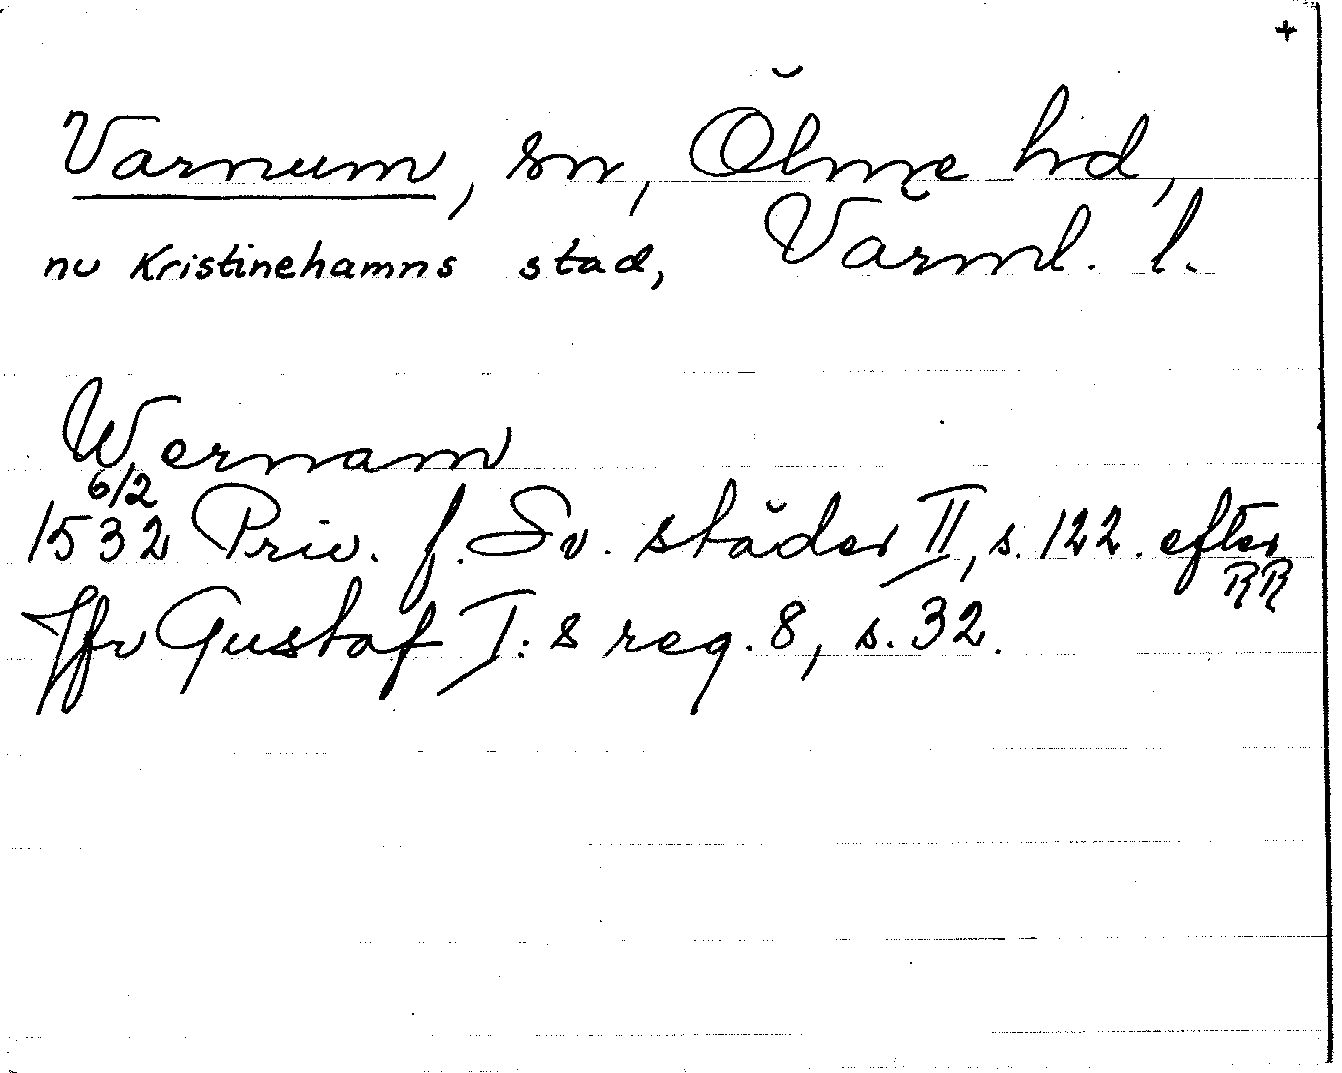 +
Varnum, sn, Ölme hd,
nu Kristinehamns stad, Värml. l.
Wernam
6/2
1532 Priv. f. Sv. städer II, s. 122. efter
RR
Jfr Gustaf I:s reg. 8, s. 32.